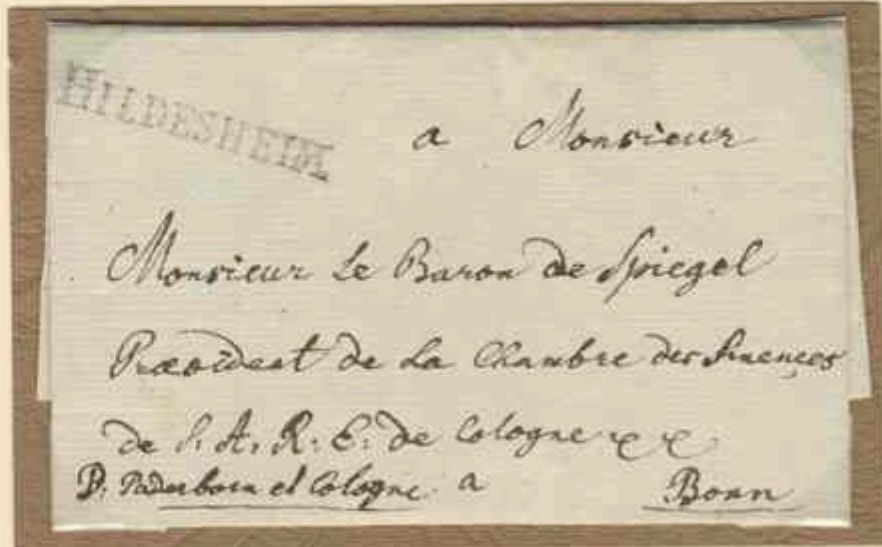 HILDESHEIM
a Monsieur
Monsieur Le Baron de Spiegel
Præsident de La Chambre des finençes
de S. A. R. E. de Cologne
P. Paderborn et Cologne a Bonn